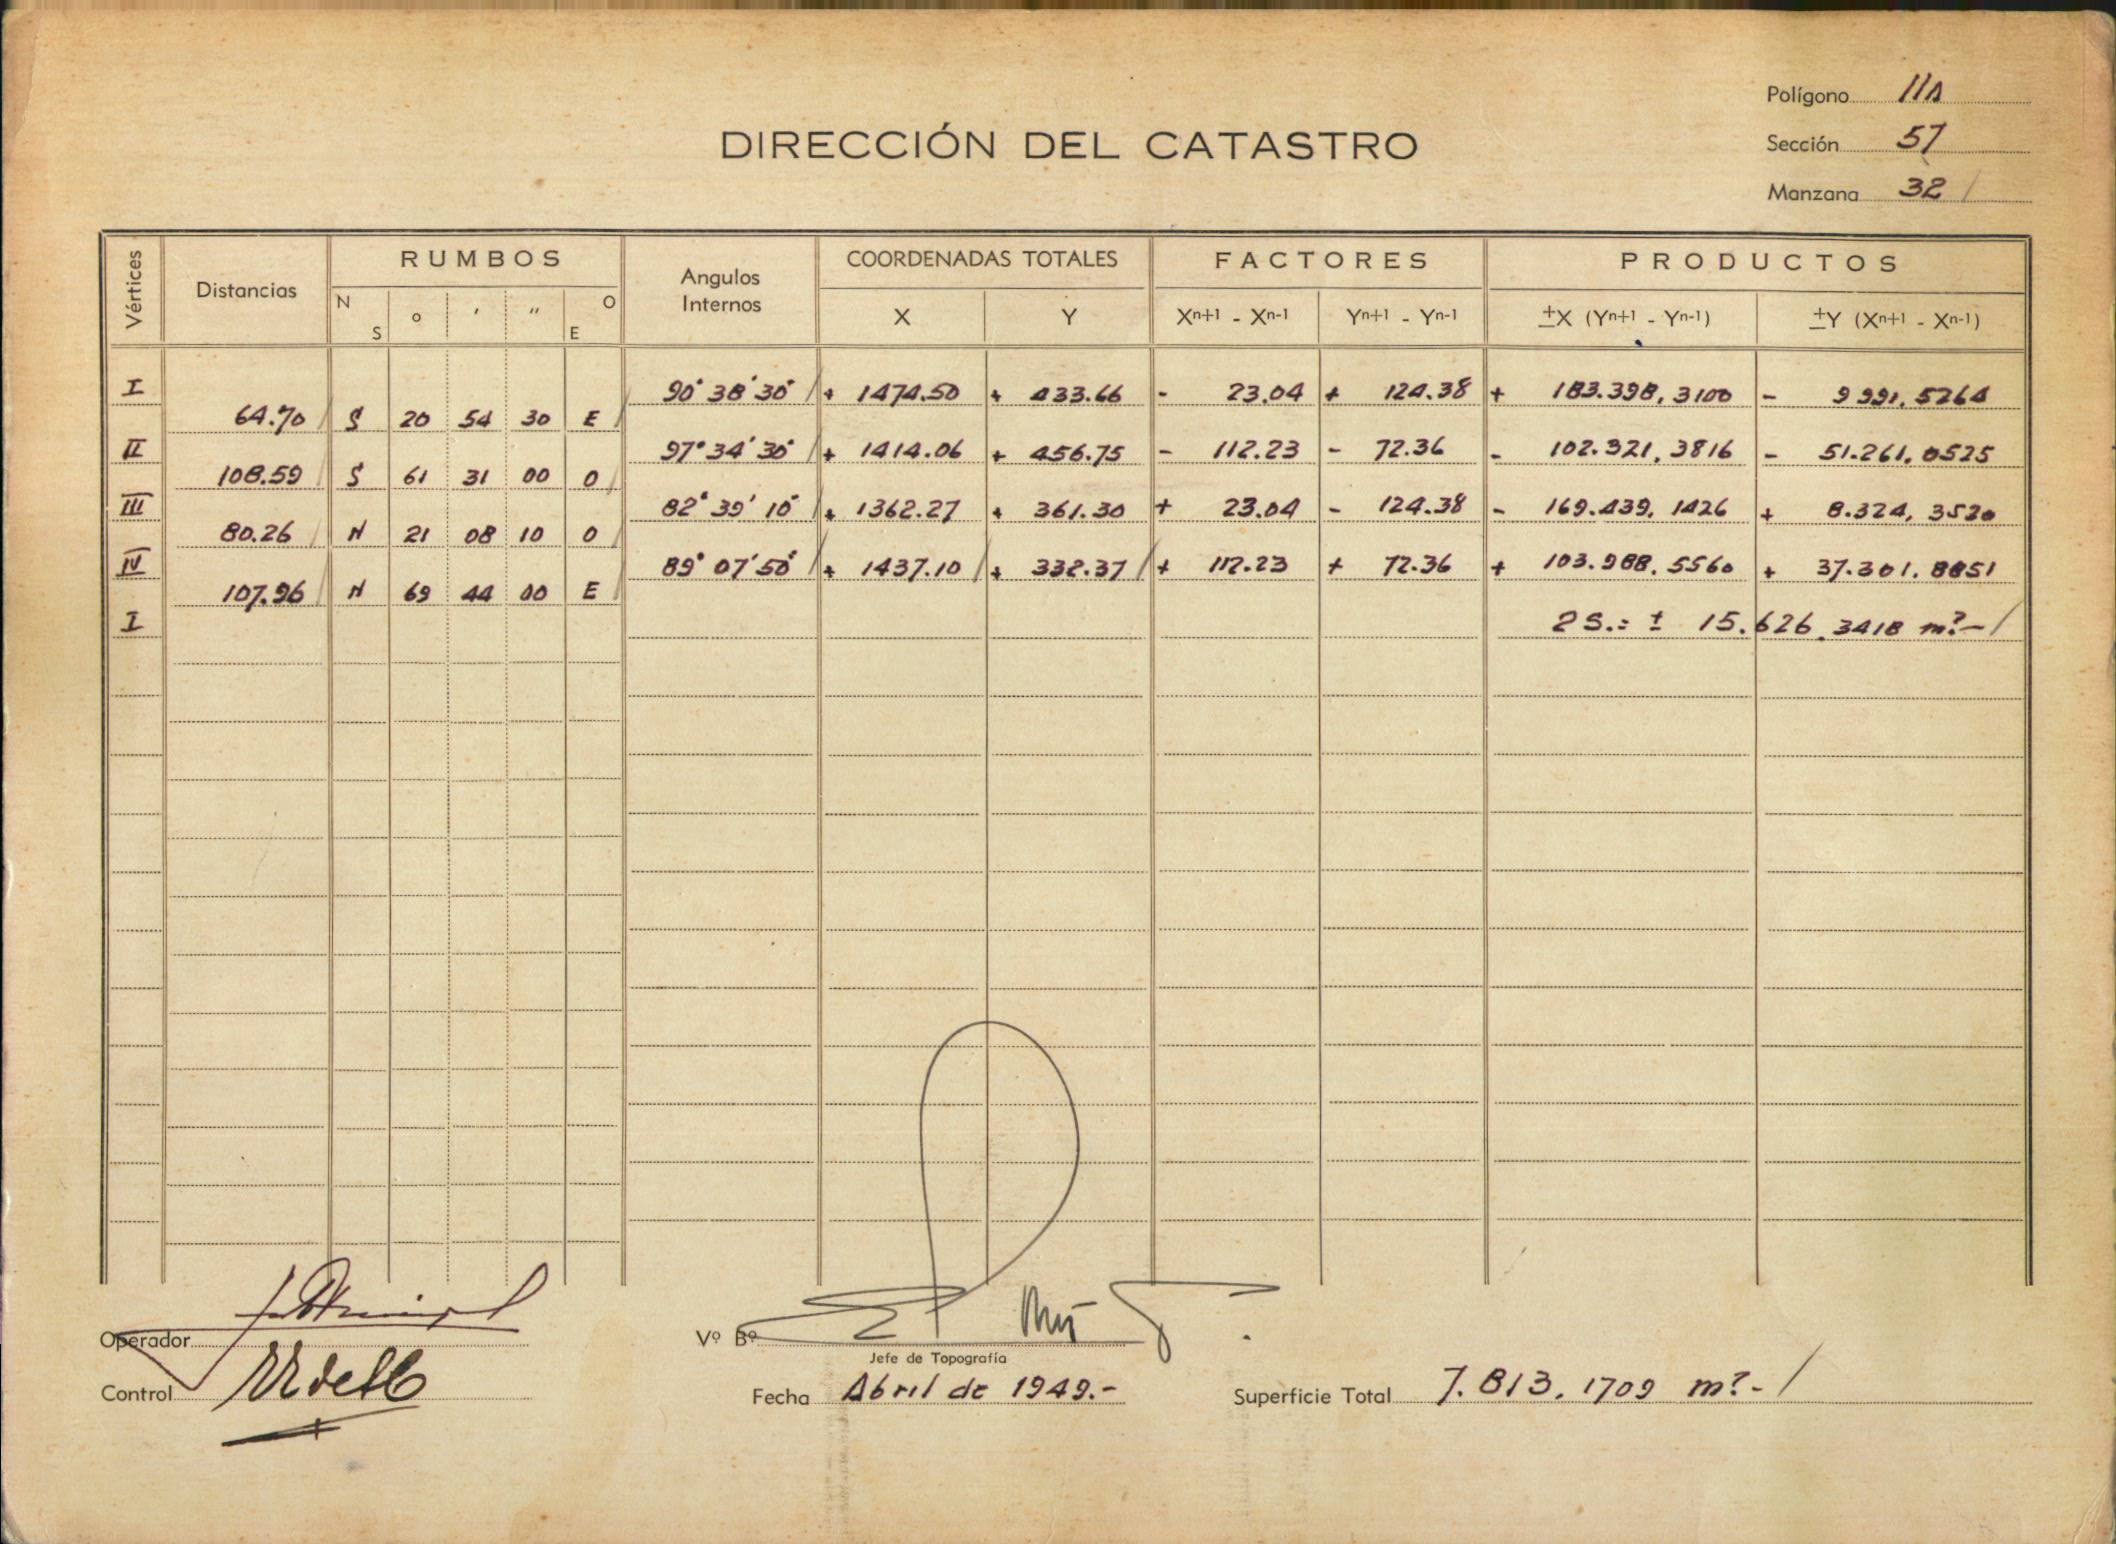 Polígono 11A
DIRECCIÓN DEL CATASTRO
Sección 57
Manzana 32 /
Vértices Distancias RUMBOS Angulos Internos COORDENADAS TOTALES FACTORES PRODUCTOS
N S ° ′ ″ O E X Y Xⁿ⁺¹ - Xⁿ⁻¹ Yⁿ⁺¹ - Yⁿ⁻¹ ±X (Yⁿ⁺¹ - Yⁿ⁻¹) ±Y (Xⁿ⁺¹ - Xⁿ⁻¹)
I 90° 38' 30" / + 1474.50 + 433.66 - 23.04 + 124.38 + 183.398,3100 - 9 991,5264
64.70 / S 20 54 30 E /
II 97° 34' 30" / + 1414.06 + 456.75 - 112.23 - 72.36 - 102.321,3816 - 51.261,0525
108.59 / S 61 31 00 O /
III 82° 39' 10" + 1362.27 + 361.30 + 23.04 - 124.38 - 169.439,1426 + 8.324,3520
80.26 / N 21 08 10 O
IV 89° 07' 50" / + 1437.10 / + 332.37 / + 112.23 + 72.36 + 103.988,5560 + 37.301,8851
107.96 / N 69 44 00 E /
I 2 S.= ± 15.626,3418 m².- /
Operador
Vº Bº
Jefe de Topografía
Control
Fecha Abril de 1949.-
Superficie Total 7.813,1709 m².- /